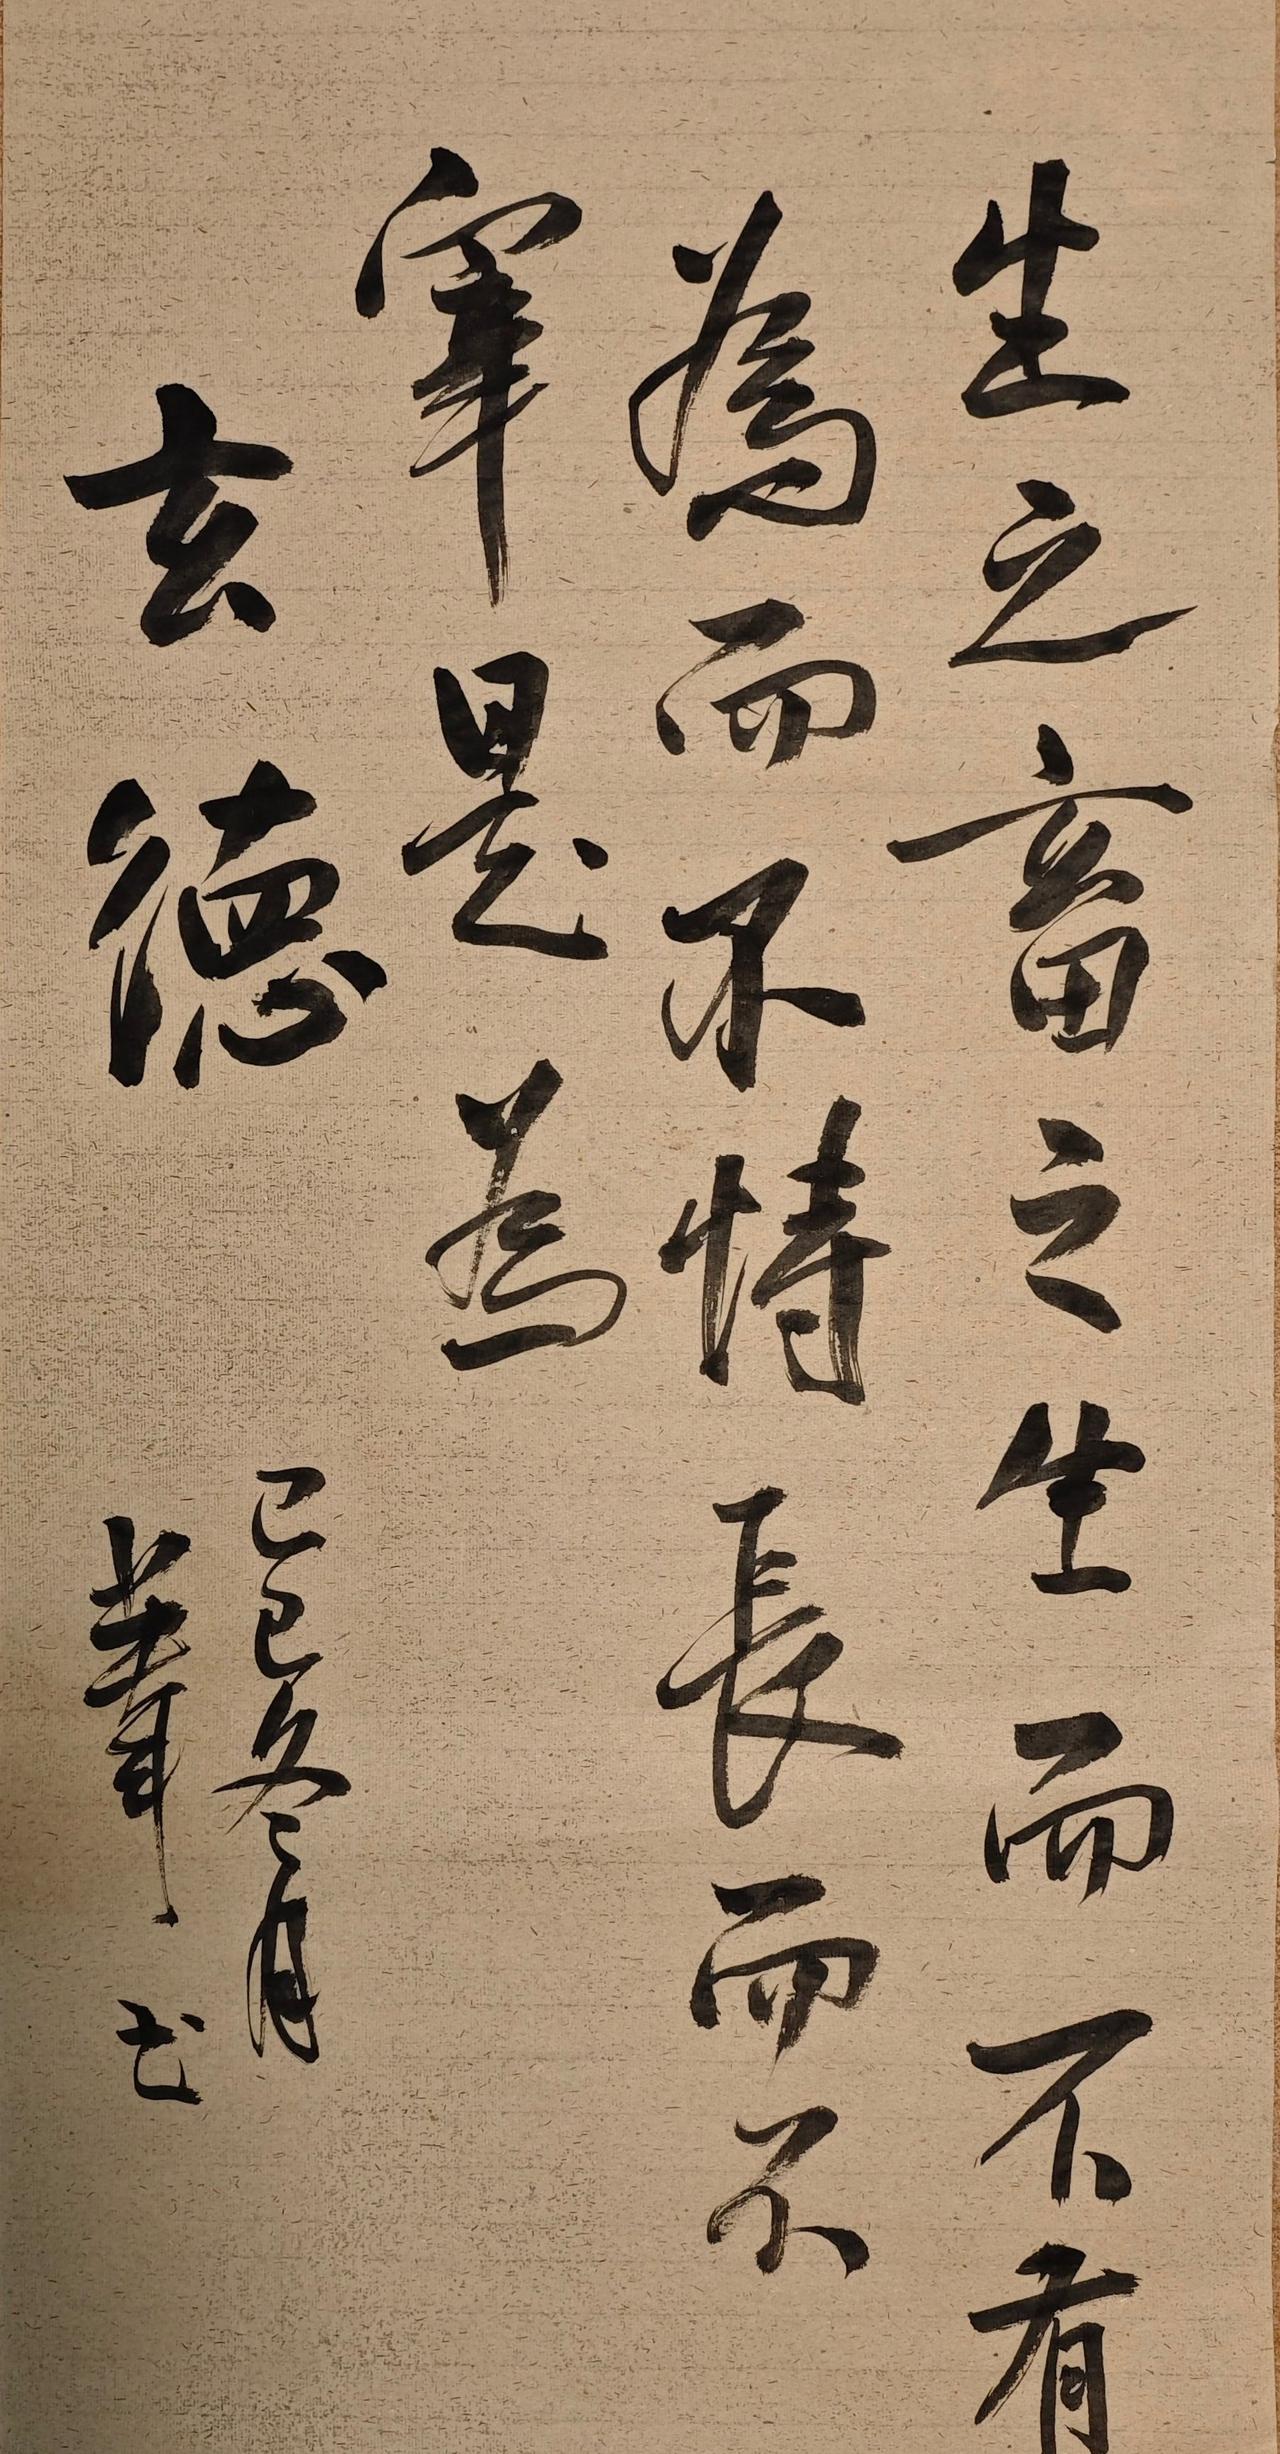 生之畜之生而不有
為而不恃長而不
宰是為
玄德
己巳冬月
書